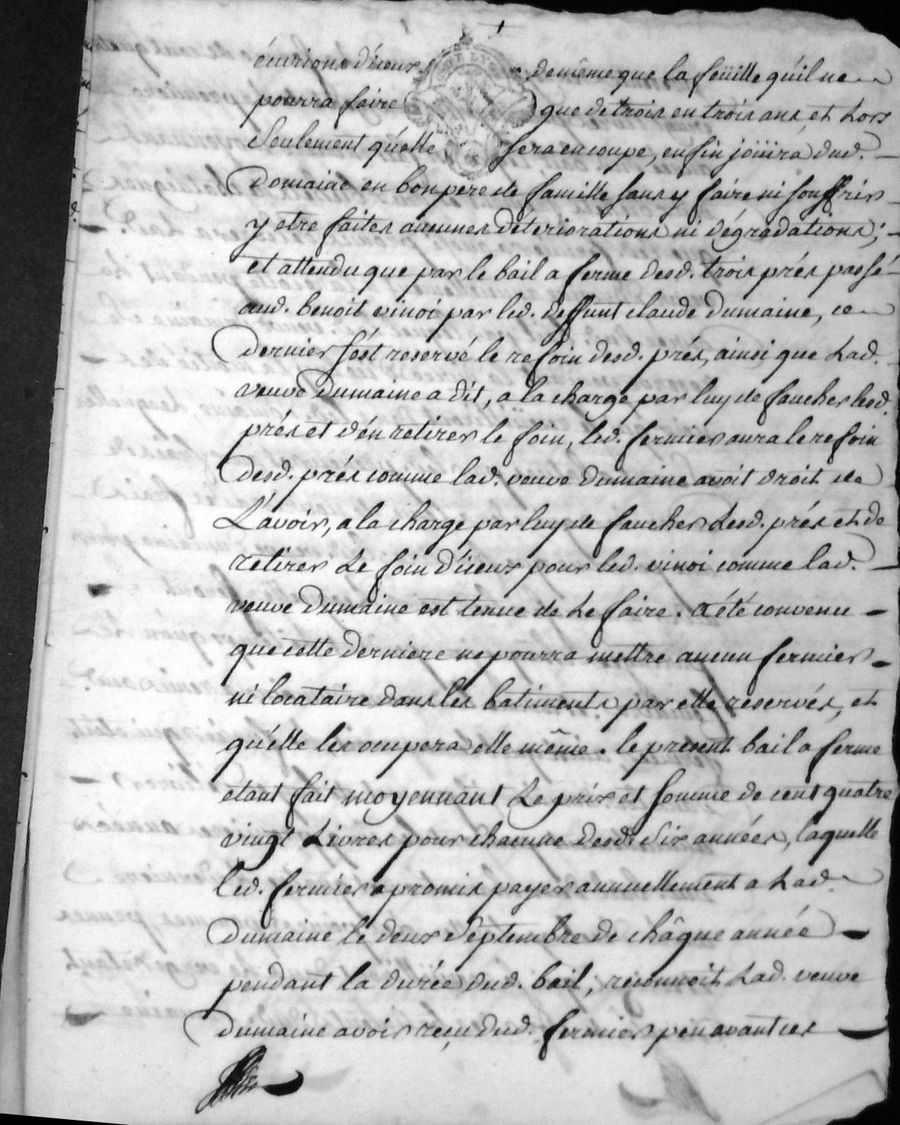 environs d'iceux, de même que la feüille qu'il ne
pourra faire que de trois en trois ans, et Lors
Seulement qu'elle sera en coupe, enfin joüira dud.
Domaine en bon pere de famille sans y faire ni souffrir
y etre faites aucunes déteriorations ni dégradations;
et attendu que par le bail a ferme desd. trois prés passé
aud. benoit vinoi par led. deffunt claude Dumaine, ce
dernier s'ést reservé le refoin desd. prés, ainsi que Lad.
veuve Dumaine a dit, a la charge par luy de faucher lesd.
prés et d'én retirer le foin, led. fermier aura le refoin
desd. prés comme lad. veuve Dumaine avoit droit de
L'avoir, a la charge par luy de faucher Lesd. prés et de
retirer Le foin d'iceux pour led. vinoi comme lad.
veuve Dumaine est tenue de Le faire. a été convenu
que cette derniere ne pourra mettre aucun fermier
ni locataire dans les batiments par elle reservés, et
qu'elle les ocupera elle même. le present bail a ferme
etant fait moyennant Le prix et somme de cent quatre
vingt Livres pour chacune desd. Six années, laquelle
led. fermier a promis payer annuellement a Lad.
Dumaine le deux Septembre de châque année
pendant la durée dud. bail; reconnoit Lad. veuve
Dumaine avoir reçu dud. fermier peu avant ces